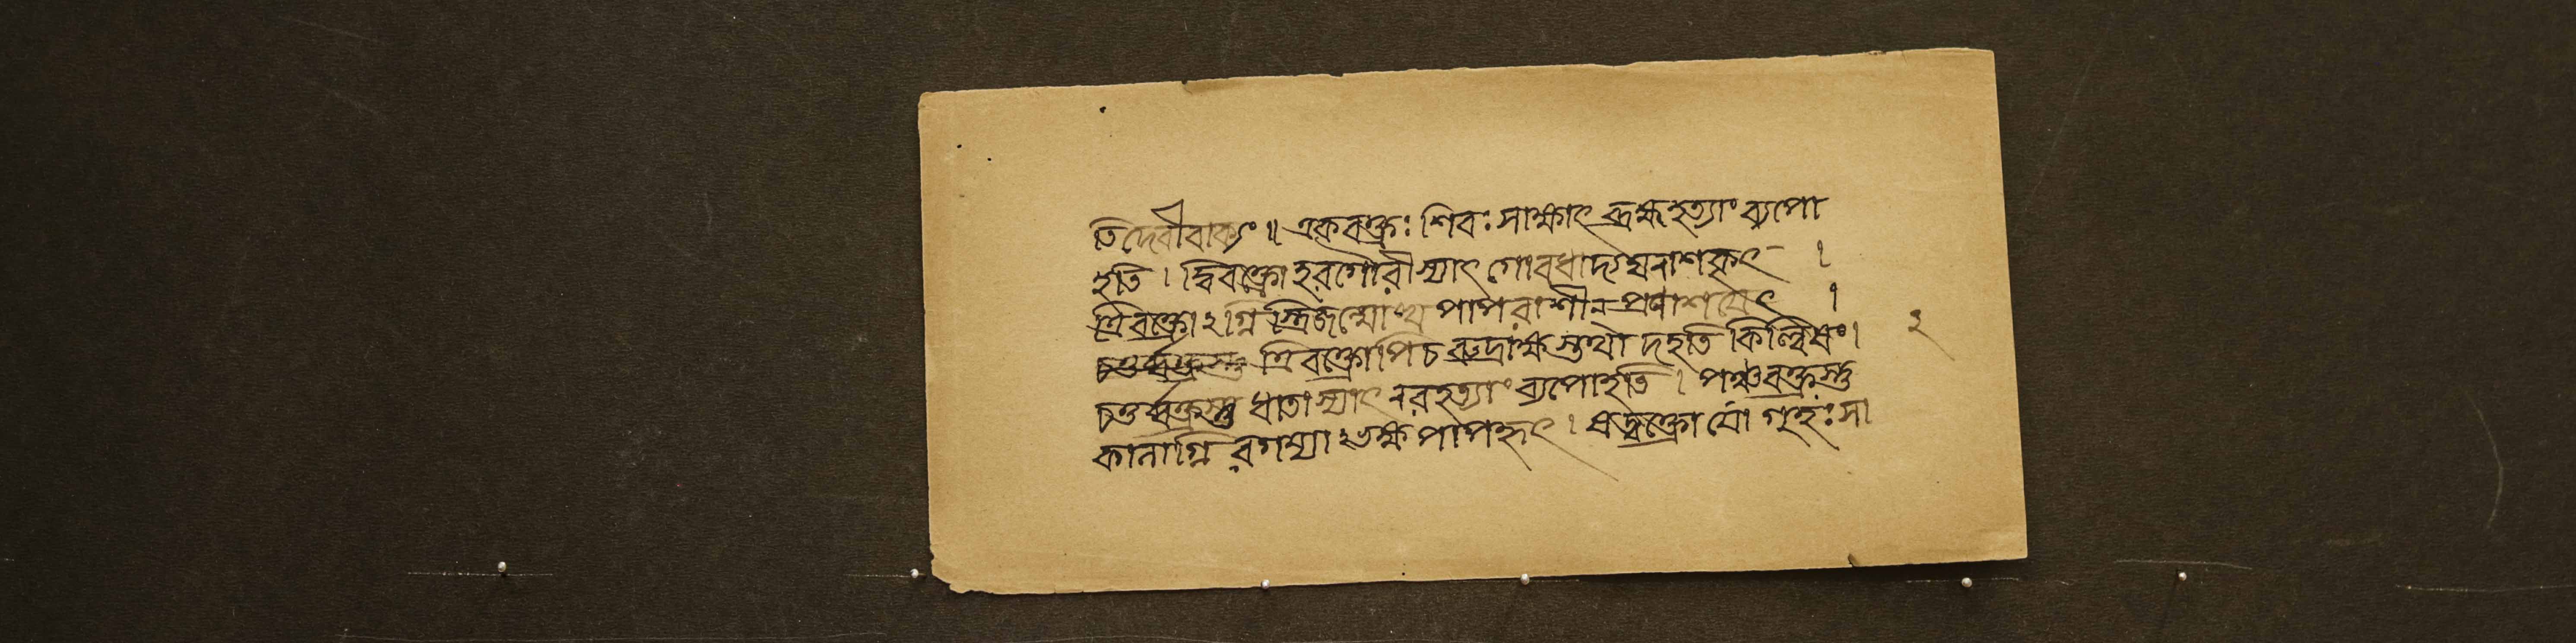 তি দেবীবাক্যং॥ একবক্ত্রঃ শিবঃ সাক্ষাৎ ব্রহ্মহত্যাং ব্যপো
হতি। দ্বিবক্ত্রো হরগৌরী স্যাৎ গোবধাদ্যঘনাশকৃৎ।
ত্রিবক্ত্রোঽগ্নিস্ত্রিজন্মোত্থ পাপরাশীন প্রণাশয়েৎ।
চতুর্ব্বক্ত্রস্তু ত্রিবক্ত্রোপি চ রুদ্রাক্ষস্তথা দহতি কিল্বিষং। ২
চতুর্ব্বক্ত্রস্তু ধাতা স্যাৎ নরহত্যাং ব্যপোহতি। পঞ্চবক্ত্রস্তু
কালাগ্নিরগম্যাঽভক্ষপাপহৃৎ। ষড়্বক্ত্রো যো গুহঃ সা